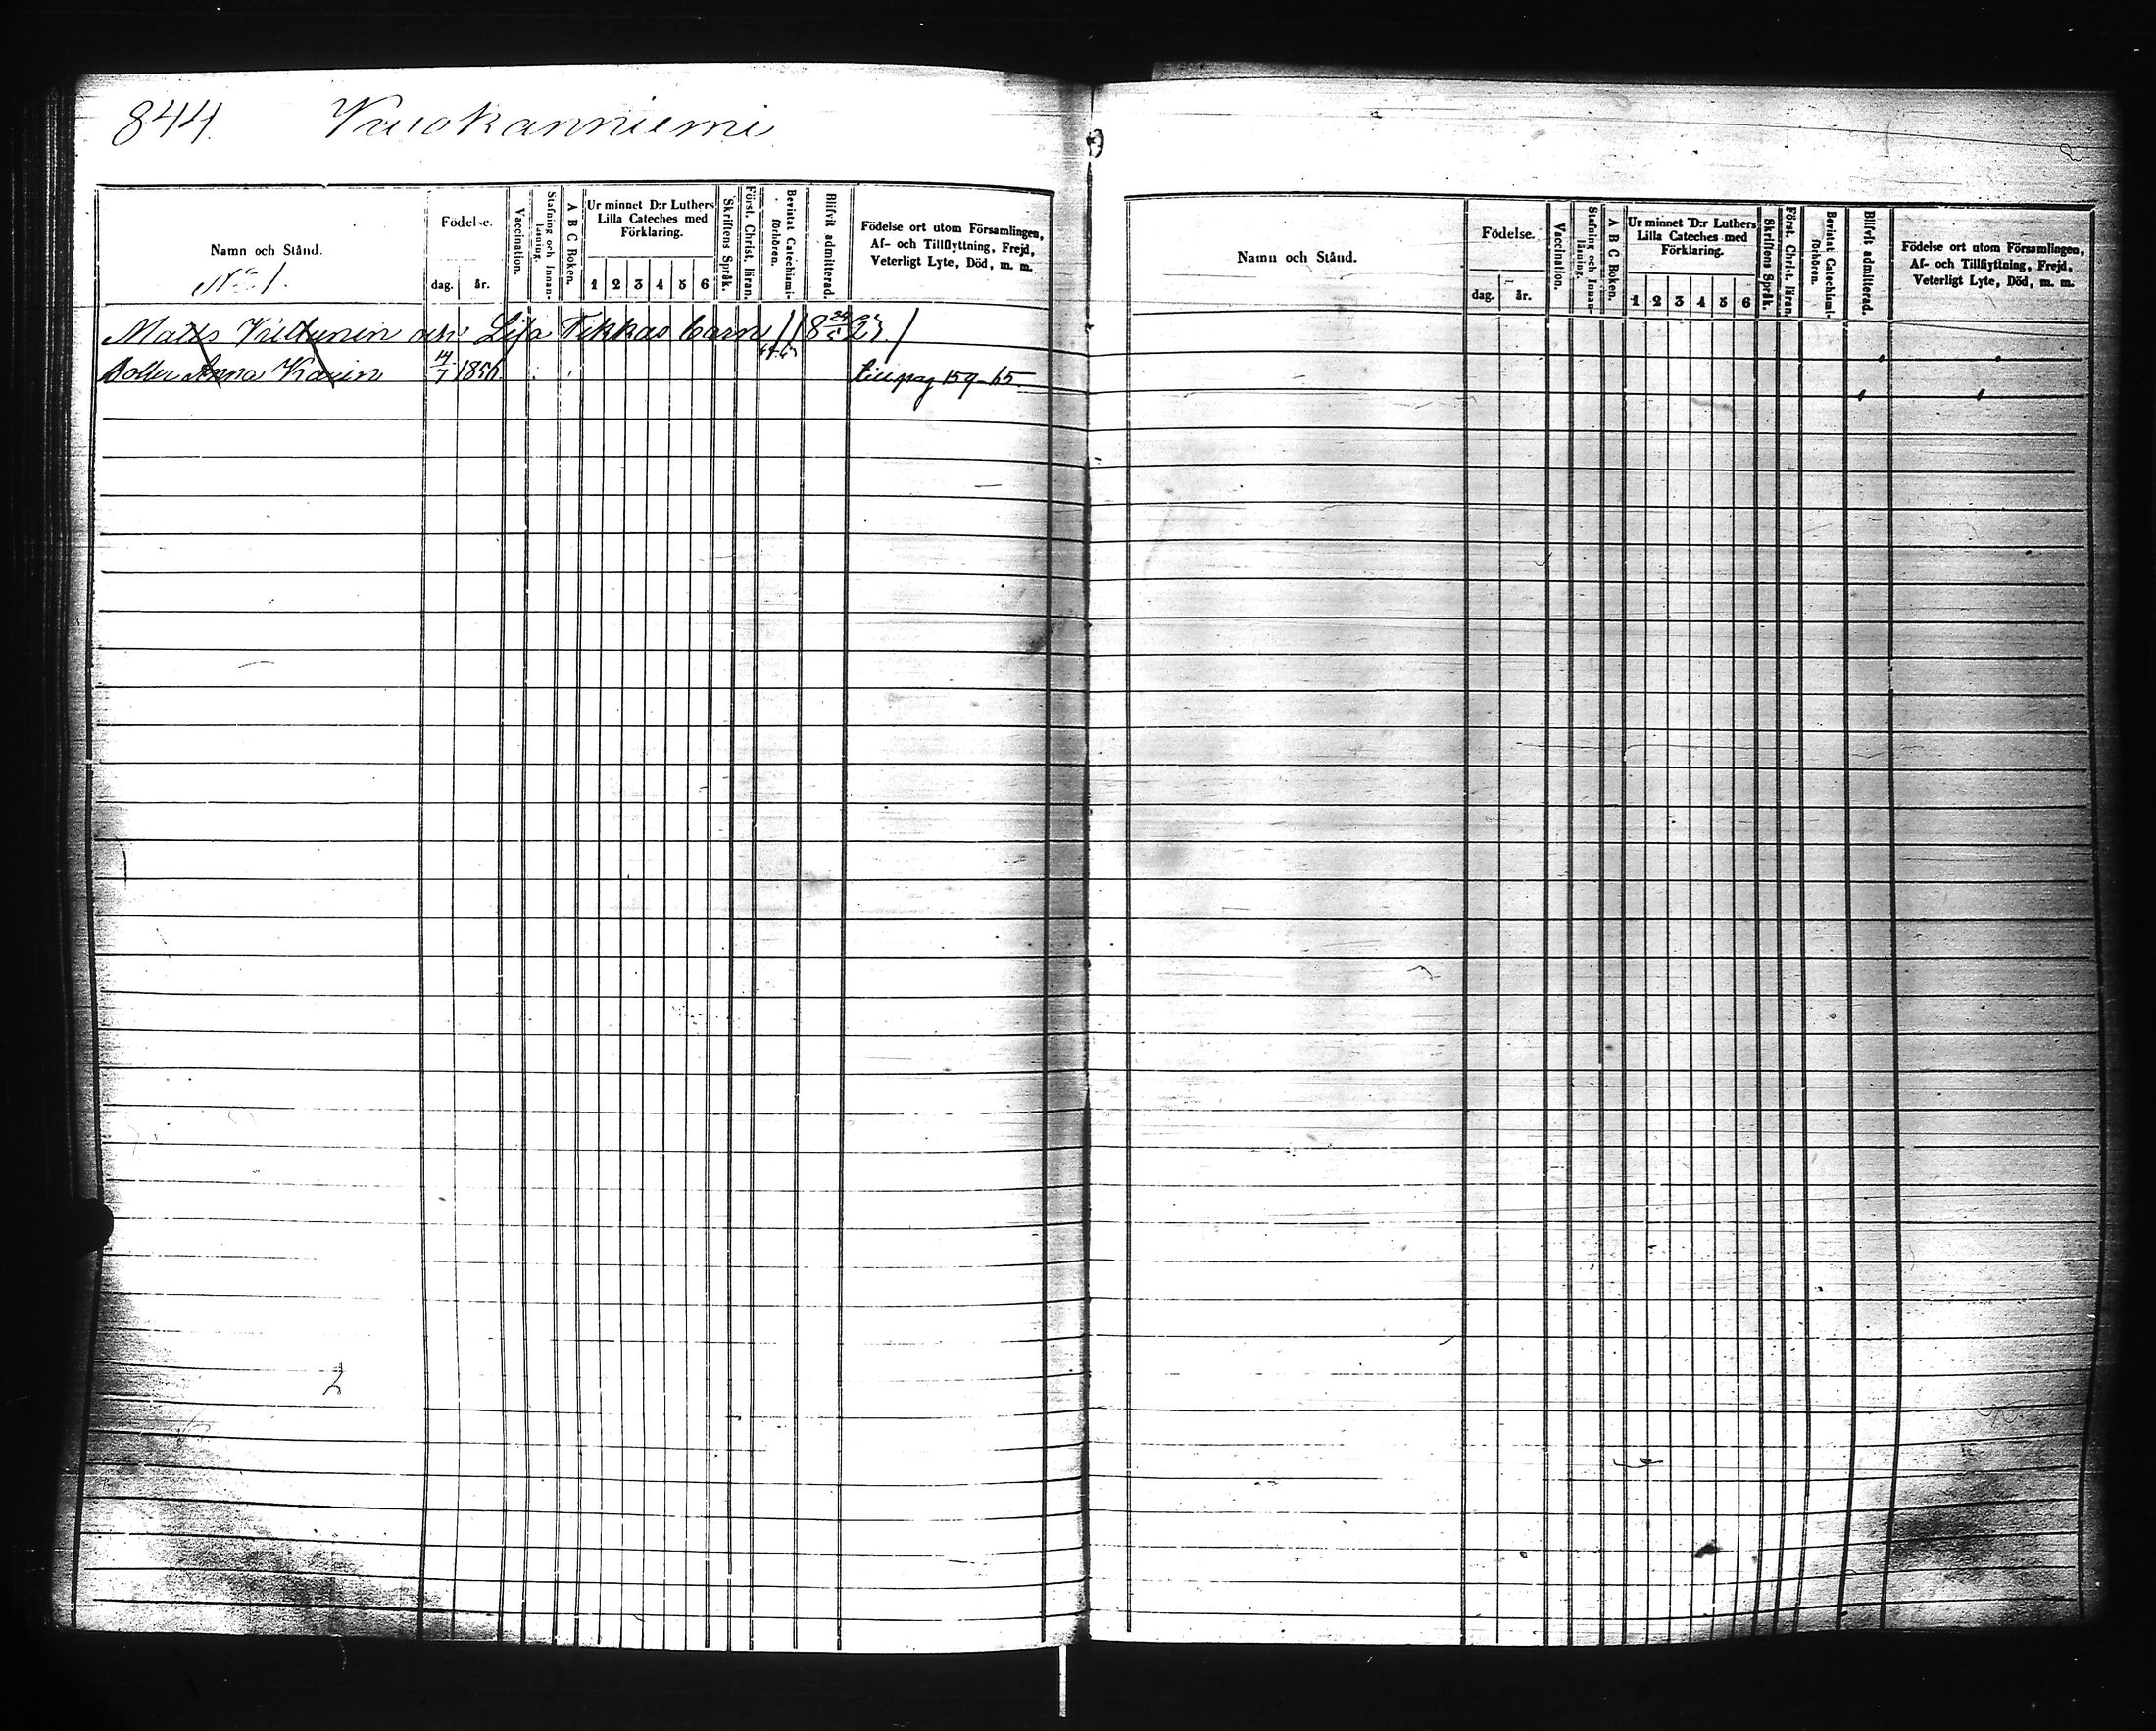 844. Vuokanniemi
Namn och Stånd.
No 1.
Födelse.
dag. år.
Vaccination.
Stafning och Innanläsning.
A B C Boken.
Ur minnet D:r Luthers
Lilla Cateches med
Förklaring.
1 2 3 4 5 6
Skriftens Språk.
Först. Christ. läran.
Bevistat Catechismiförhören.
Blifvit admitterad.
Födelse ort utom Församlingen,
Af- och Tillflyttning, Frejd,
Veterligt Lyte, Död, m. m.
Matts och Lisa Tikkas barn
Anna Karin 14/7 1856. till pag 159-65
Namn och Stånd.
Födelse.
dag. år.
Vaccination.
Stafning och Innanläsning.
A B C Boken.
Ur minnet D:r Luthers
Lilla Cateches med
Förklaring.
1 2 3 4 5 6
Skriftens Språk.
Först. Christ. läran.
Bevistat Catechismiförhören.
Blifvit admitterad.
Födelse ort utom Församlingen,
Af- och Tillflyttning, Frejd,
Veterligt Lyte, Död, m. m.